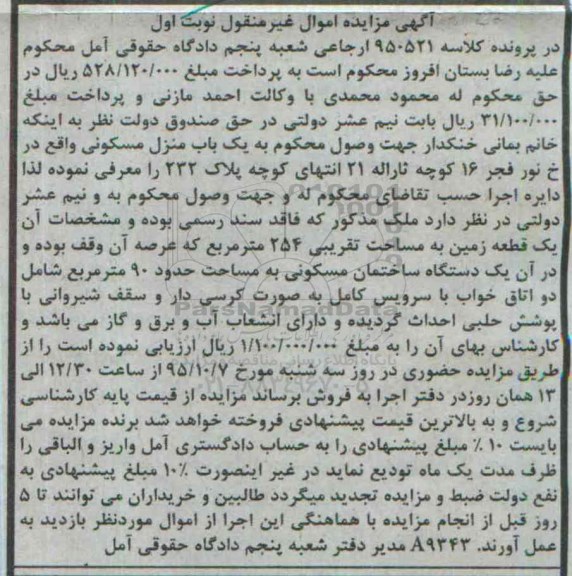 آگهی مزایده اموال غیرمنقول نوبت اول
در پرونده کلاسه ۹۵۰۵۲۱ ارجاعی شعبه پنجم دادگاه حقوقی آمل محکوم
علیه رضا بستان افروز محکوم است به پرداخت مبلغ ۵۲۸/۱۲۰/۰۰۰ ریال در
حق محکوم له محمود محمدی با وکالت احمد مازنی و پرداخت مبلغ
۳۱/۱۰۰/۰۰۰ ریال بابت نیم عشر دولتی در حق صندوق دولت نظر به اینکه
خانم بمانی خنکدار جهت وصول محکوم به یک باب منزل مسکونی واقع در
خ نور فجر ۱۶ کوچه ثاراله ۲۱ انتهای کوچه پلاک ۲۳۲ را معرفی نموده لذا
دایره اجرا حسب تقاضای محکوم له و جهت وصول محکوم به و نیم عشر
دولتی در نظر دارد ملک مذکور که فاقد سند رسمی بوده و مشخصات آن
یک قطعه زمین به مساحت تقریبی ۲۵۴ مترمربع که عرصه آن وقف بوده و
در آن یک دستگاه ساختمان مسکونی به مساحت حدود ۹۰ مترمربع شامل
دو اتاق خواب با سرویس کامل به صورت کرسی دار و سقف شیروانی با
پوشش حلبی احداث گردیده و دارای انشعاب آب و برق و گاز می باشد و
کارشناس بهای آن را به مبلغ ۱/۱۰۰/۰۰۰/۰۰۰ ریال ارزیابی نموده است را از
طریق مزایده حضوری در روز سه شنبه مورخ ۹۵/۱۰/۷ از ساعت ۱۲/۳۰ الی
۱۳ همان روزدر دفتر اجرا به فروش برساند مزایده از قیمت پایه کارشناسی
شروع و به بالاترین قیمت پیشنهادی فروخته خواهد شد برنده مزایده می
بایست ۱۰ ٪ مبلغ پیشنهادی را به حساب دادگستری آمل واریز و الباقی را
ظرف مدت یک ماه تودیع نماید در غیر اینصورت ۱۰٪ مبلغ پیشنهادی به
نفع دولت ضبط و مزایده تجدید میگردد طالبین و خریداران می توانند تا ۵
روز قبل از انجام مزایده با هماهنگی این اجرا از اموال موردنظر بازدید به
عمل آورند. A۹۳۴۳ مدیر دفتر شعبه پنجم دادگاه حقوقی آمل
ParsNamadData